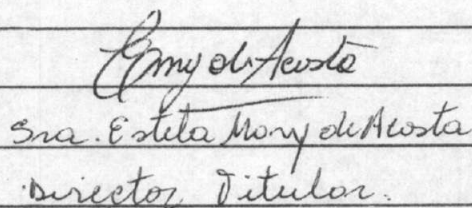 Emy de Acosta
Sra. Estela Mony de Acosta
Director Titular.